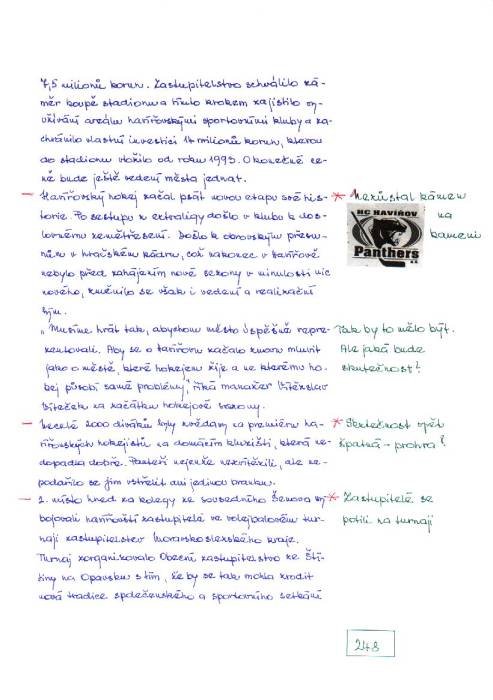 7,5 milionů korun. Zastupitelstvo schválilo zá-
měr koupě stadionu a tímto krokem zajistilo vy-
užívání areálu havířovskými sportovními kluby a za-
chránilo vlastní investici 14 milionů korun, kterou
do stadionu vložilo od roku 1993. O konečné ce-
ně bude ještě vedení města jednat.
— Havířovský hokej začal psát novou etapu své his-
torie. Po sestupu z extraligy došlo v klubu k dos-
lovnému zemětřesení. Došlo k obrovským přesu-
nům v hráčském kádru, což nakonec v Havířově
nebylo před zahájením nové sezony v minulosti nic
nového, změnilo se však i vedení a realizační
tým.
„Musíme hrát tak, abychom město úspěšně repre-
zentovali. Aby se o Havířovu začalo znovu mluvit
jako o městě, které hokejem žije a ne kterému ho-
kej působí samé problémy," říká manažer Vítězslav
Víteček na začátku hokejové sezony.
— Necelé 2000 diváků byly zvědavy na premiéru ha-
vířovských hokejistů na domácím kluzišti, která ne-
dopadla dobře. Panteři nejenže nezvítězili, ale ne-
podařilo se jim vstřelit ani jedinou branku.
— 2. místo hned za kolegy ze sousedního Šenova vy-
bojovali havířovští zastupitelé ve volejbalovém tur-
naji zastupitelstev Moravskoslezského kraje.
Turnaj zorganizovalo Obecní zastupitelstvo ze Ští-
tiny na Opavsku s tím, že by se tak mohla zrodit
nová tradice společenského a sportovního setkání
* Nezůstal kámen
na
kameni
HC HAVÍŘOV
Panthers
Tak by to mělo být.
Ale jaká bude
skutečnost?
* Skutečnost opět
špatná - prohra!
* Zastupitelé se
potili na turnaji
248